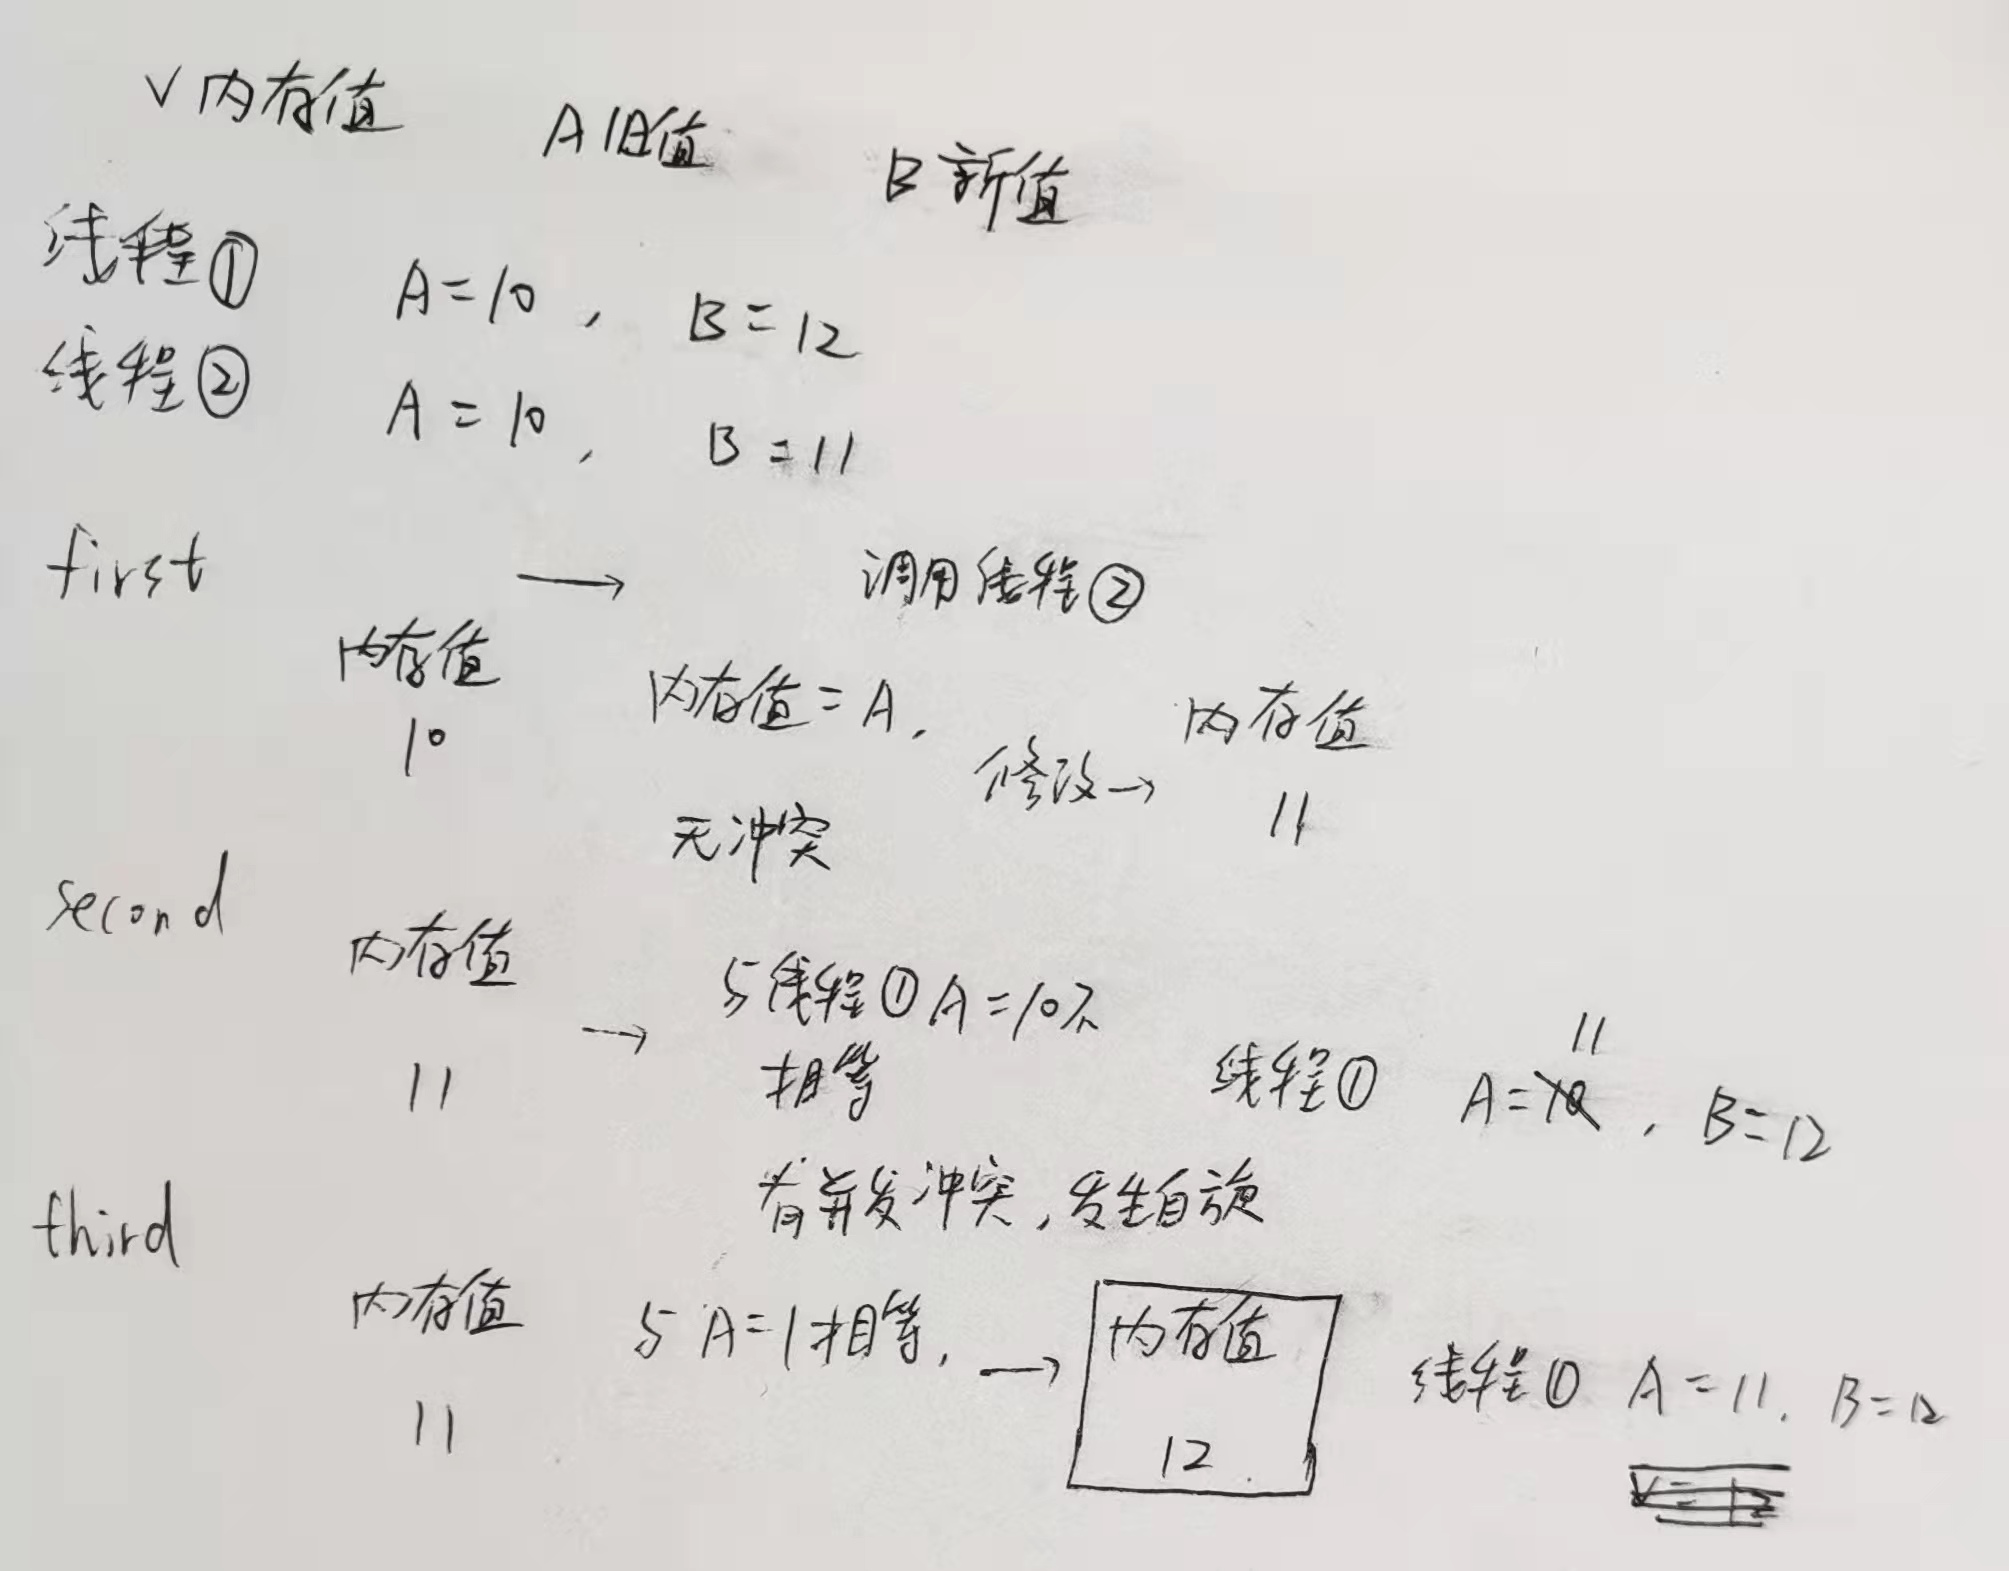 V内存值 A旧值 B新值
线程① A=10, B=12
线程② A=10, B=11
first → 调用线程②
内存值 内存值=A, 修改→ 内存值
10 11
无冲突
second
内存值 → 与线程①A=10不
11 相等 线程① A=10 11, B=12
有并发冲突,发生自旋
third
内存值 与A=1相等, → 内存值 线程① A=11, B=12
11 12
V=12